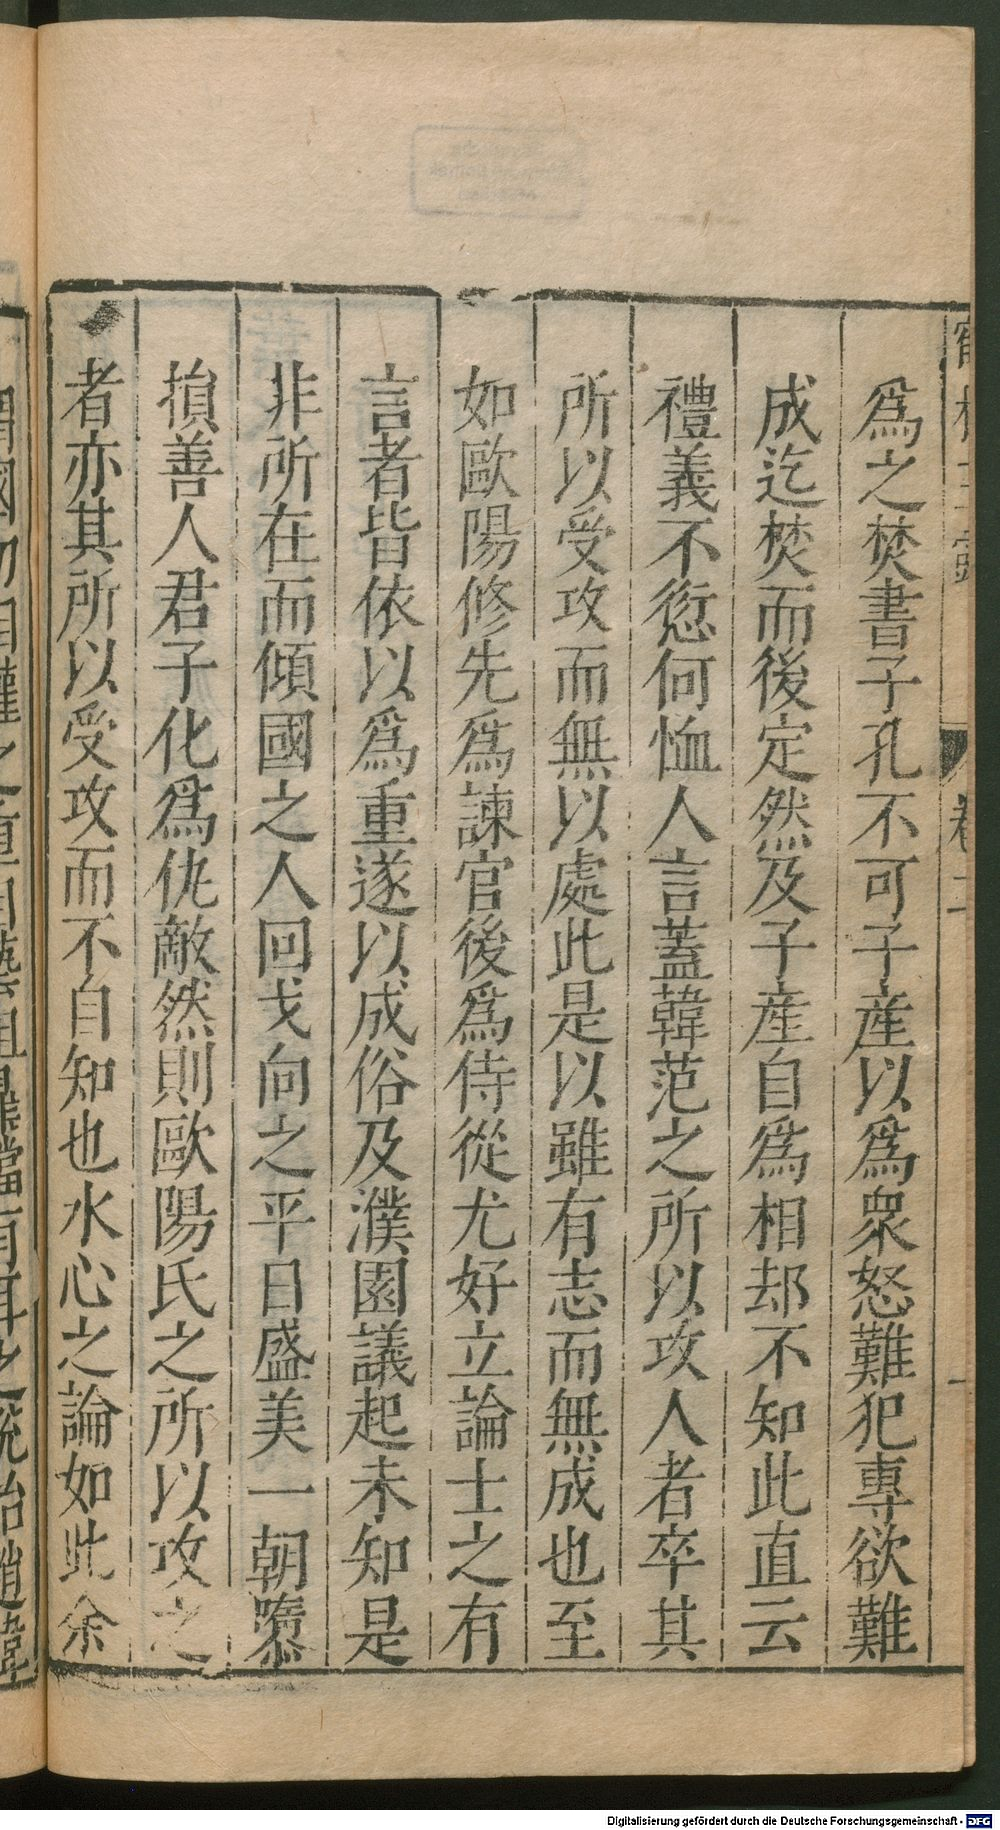 爲之焚書子孔不可子産以爲衆怒難犯專欲難
成迄焚而後定然及子産自爲相却不知此直云
禮義不愆何恤人言蓋韓范之所以攻人者卒其
所以受攻而無以處此是以雖有志而無成也至
如歐陽修先爲諫官後爲侍從尤好立論士之有
言者皆依以爲重遂以成俗及濮園議起未知是
非所在而傾國之人回戈向之平日盛美一朝隳
損善人君子化爲仇敵然則歐陽氏之所以攻之
者亦其所以受攻而不自知也水心之論如此余
卷二
一
Digitalisierung gefördert durch die Deutsche Forschungsgemeinschaft - DFG